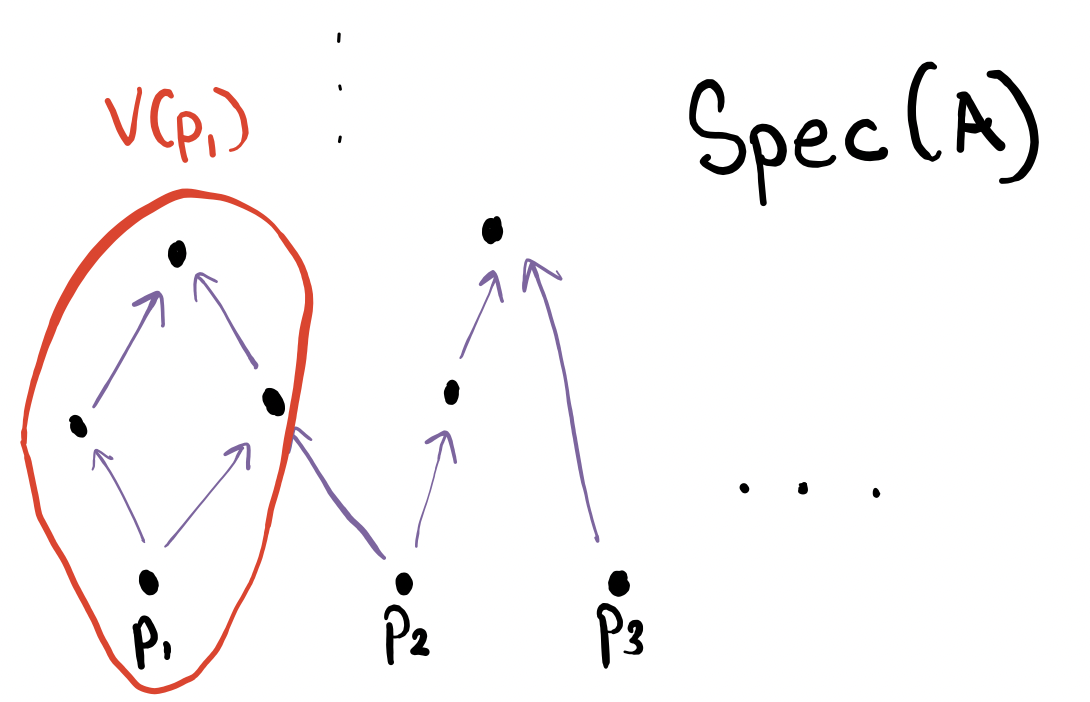 V(p₁)
Spec(A)
. . .
p₁
p₂
p₃